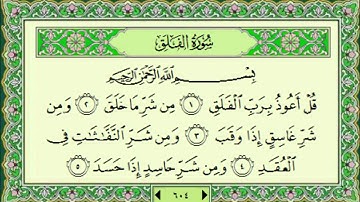 سُورَةُ الفَلَقِ
بِسْمِ اللَّهِ الرَّحْمَٰنِ الرَّحِيمِ
قُلْ أَعُوذُ بِرَبِّ الْفَلَقِ ١ مِن شَرِّ مَا خَلَقَ ٢ وَمِن
شَرِّ غَاسِقٍ إِذَا وَقَبَ ٣ وَمِن شَرِّ النَّفَّاثَاتِ فِي
الْعُقَدِ ٤ وَمِن شَرِّ حَاسِدٍ إِذَا حَسَدَ ٥
٦٠٤